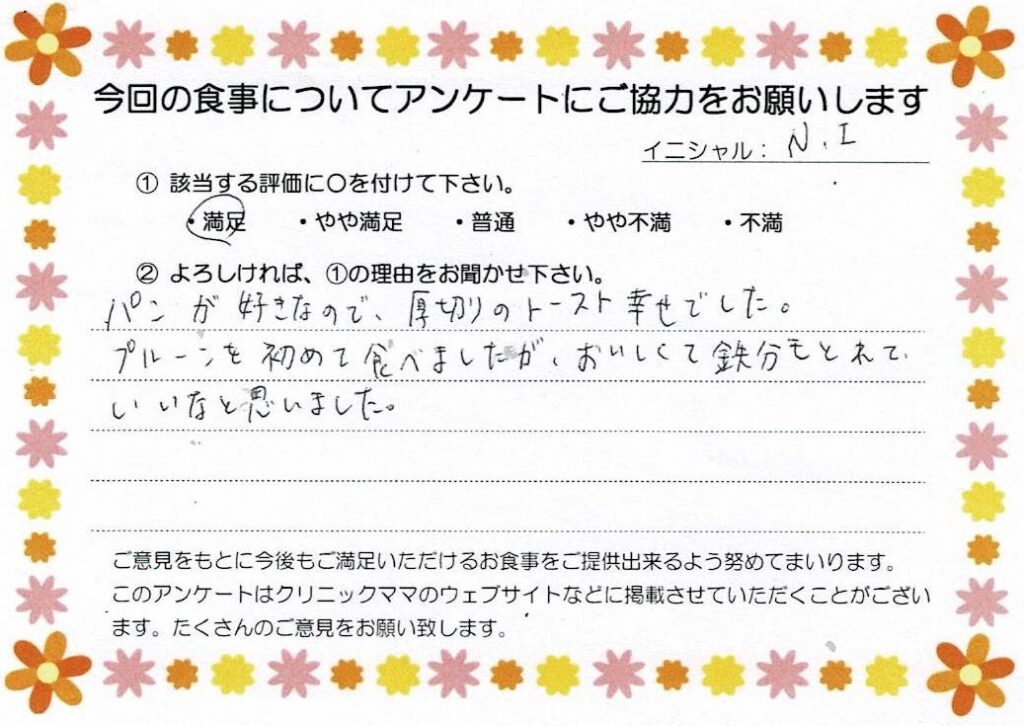 今回の食事についてアンケートにご協力をお願いします
イニシャル： N.I
① 該当する評価に〇を付けて下さい。
・満足 ・やや満足 ・普通 ・やや不満 ・不満
② よろしければ、①の理由をお聞かせ下さい。
パンが好きなので、厚切りのトースト幸せでした。
プルーンを初めて食べましたが、おいしくて鉄分もとれて、
いいなと思いました。
ご意見をもとに今後もご満足いただけるお食事をご提供出来るよう努めてまいります。
このアンケートはクリニックママのウェブサイトなどに掲載させていただくことがござい
ます。たくさんのご意見をお願い致します。